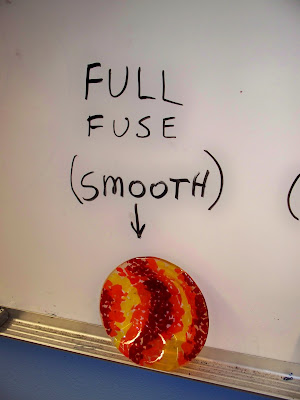 FULL
FUSE
(SMOOTH)